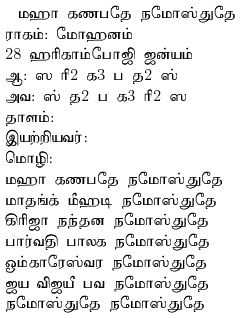 மஹா கணபதே நமோஸ்துதே
ராகம்: மோஹனம்
28 ஹரிகாம்போஜி ஜன்யம்
ஆ: ஸ ரி2 க3 ப த2 ஸ்
அவ: ஸ் த2 ப க3 ரி2 ஸ
தாளம்:
இயற்றியவர்:
மொழி:
மஹா கணபதே நமோஸ்துதே
மாதங்க் மீஹடி நமோஸ்துதே
கிரிஜா நந்தன நமோஸ்துதே
பார்வதி பாலக நமோஸ்துதே
ஒம்காரேஸ்வர நமோஸ்துதே
ஜய விஜயீ பவ நமோஸ்துதே
நமோஸ்துதே நமோஸ்துதே